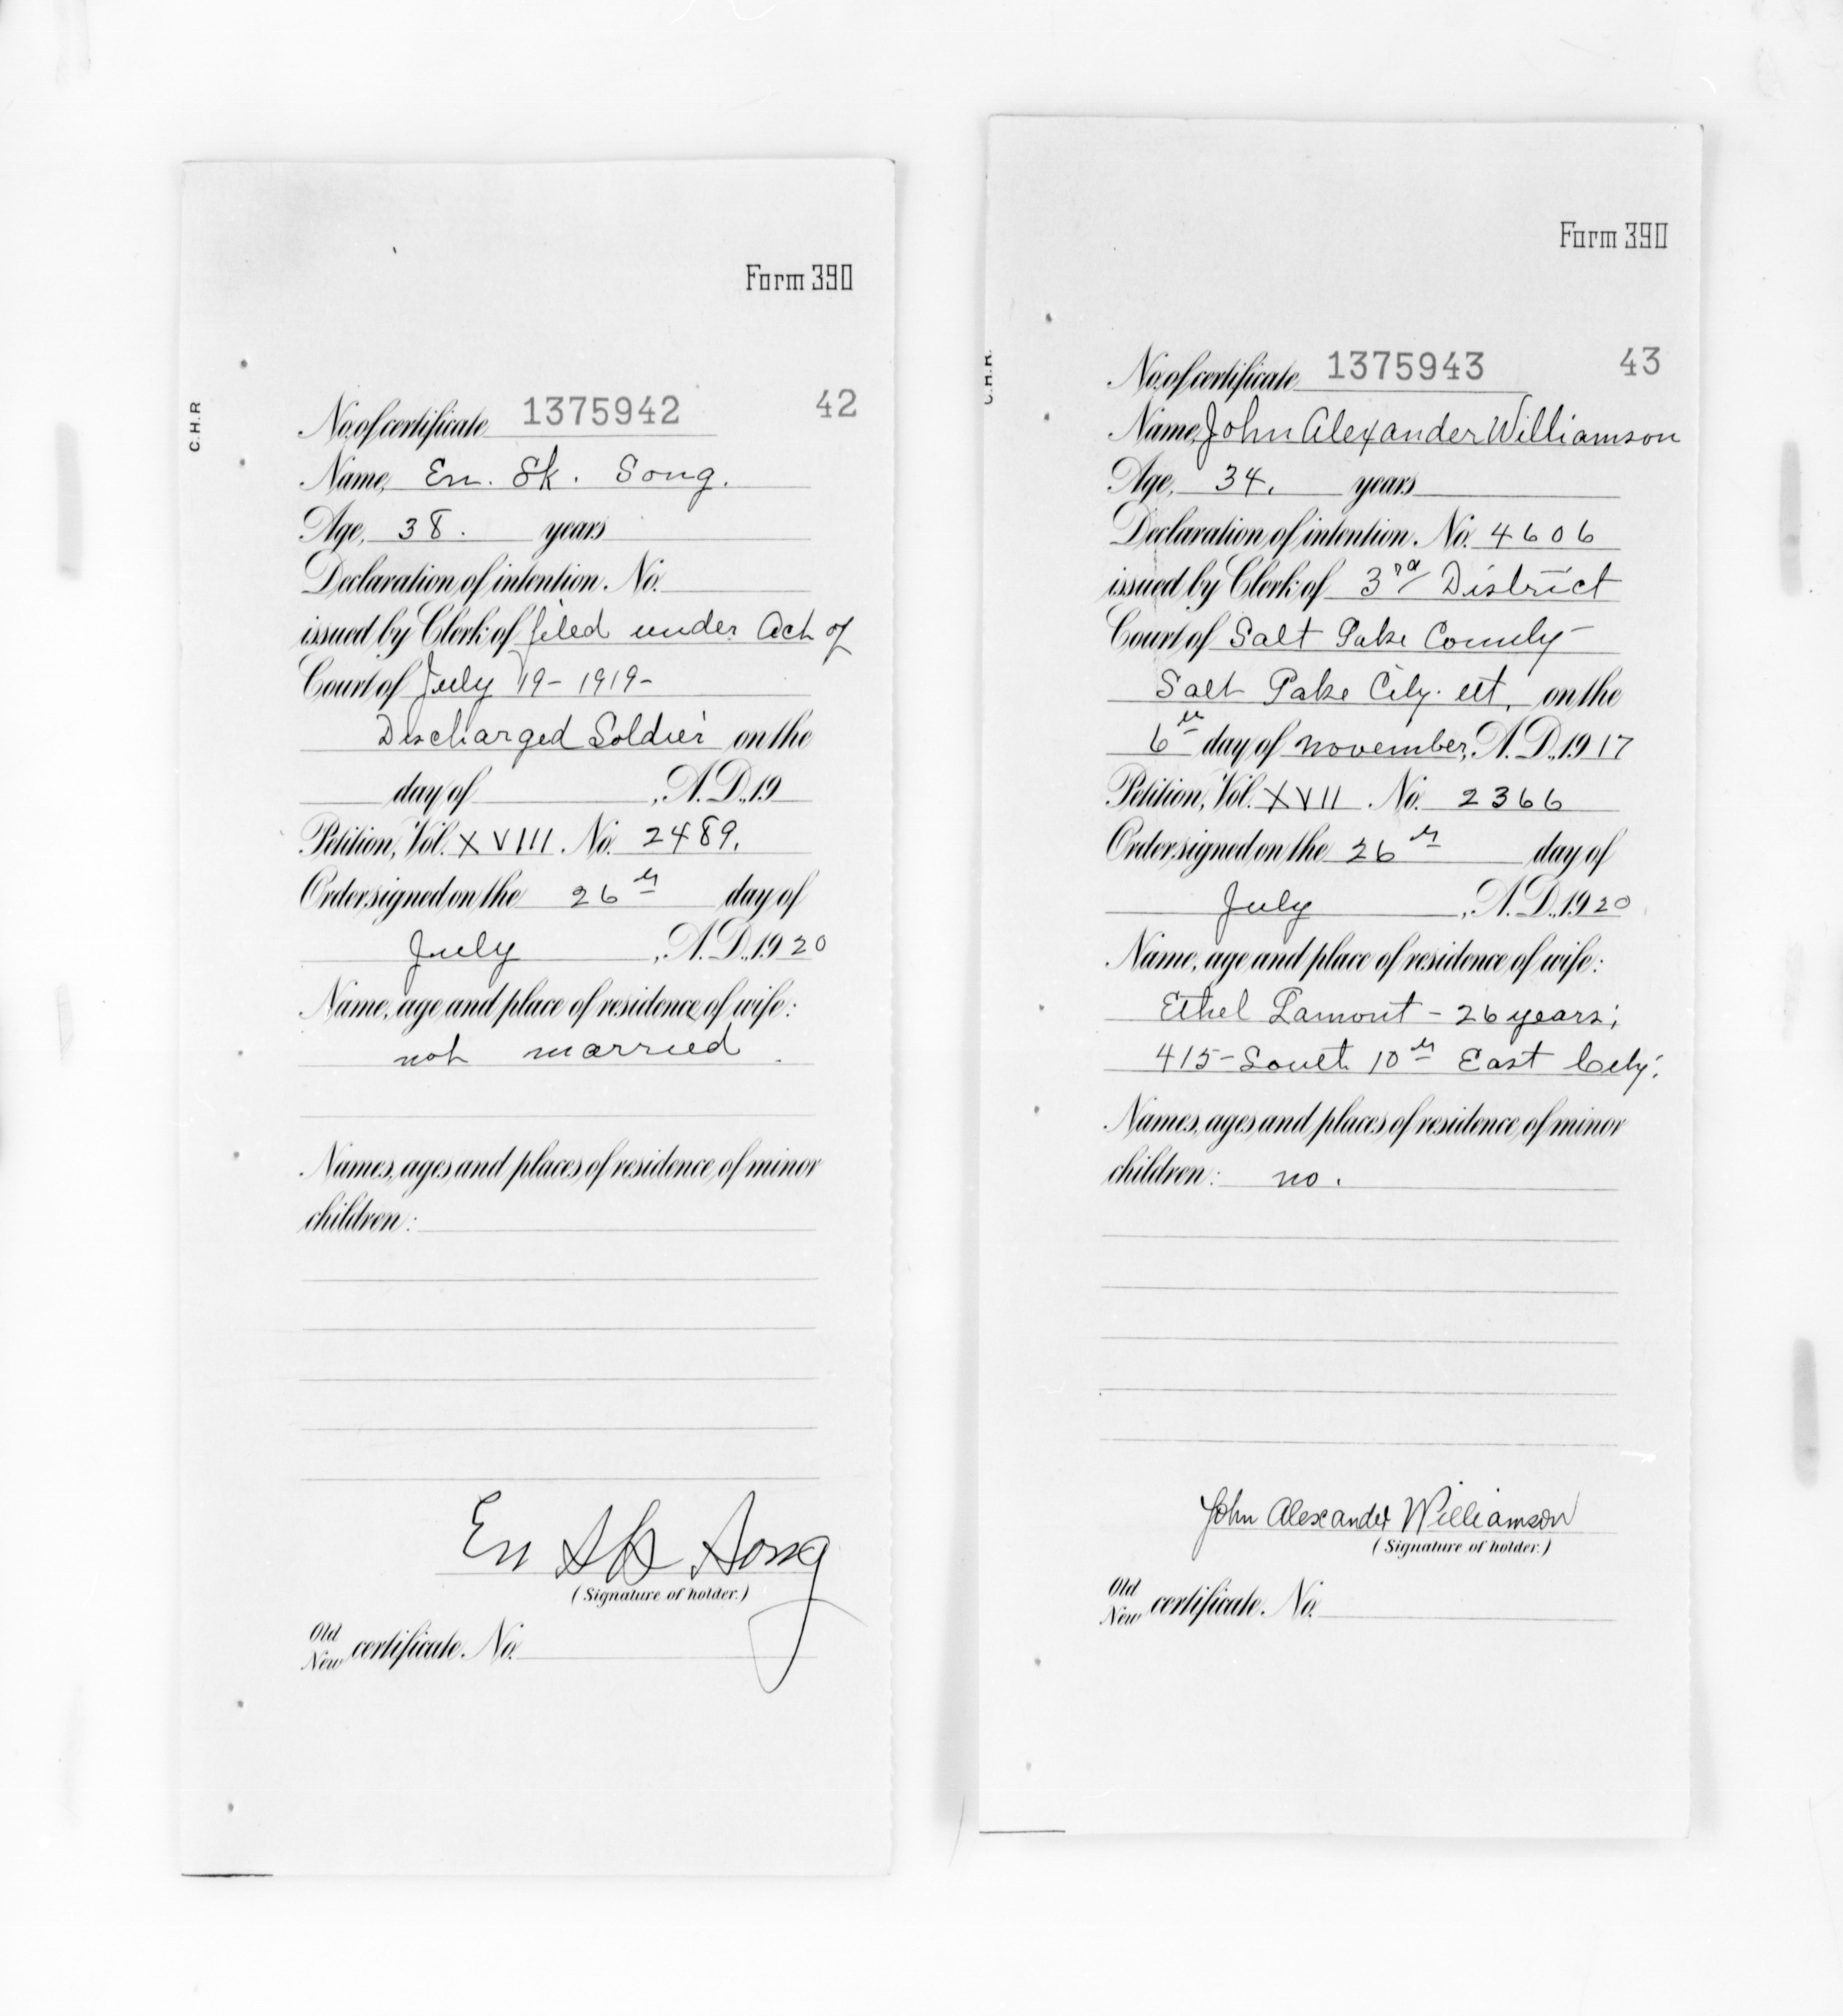 Form 390
C.H.R
No. of certificate 1375942 42
Name, En. Sk. Song.
Age, 38. years
Declaration of intention. No.
issued by Clerk of filed under Act of
Court of July 19-1919-
Discharged Soldier on the
day of , A.D., 19
Petition, Vol. XVIII. No. 2489.
Order signed on the 26th day of
July , A.D., 1920
Name, age and place of residence of wife:
not married.
Names, ages and places of residence of minor
children:
En Sk Song
(Signature of holder.)
Old
New certificate. No.
Form 390
C.H.R.
No. of certificate 1375943 43
Name, John Alexander Williamson
Age, 34. years
Declaration of intention. No. 4606
issued by Clerk of 3rd District
Court of Salt Lake County
Salt Lake City. Ut. on the
6th day of November, A.D., 1917
Petition, Vol. XVII. No. 2366
Order signed on the 26th day of
July , A.D., 1920
Name, age and place of residence of wife:
Ethel Lamont - 26 years;
415-South 10th East City.
Names, ages and places of residence of minor
children: no.
John Alexander Williamson
(Signature of holder.)
Old
New certificate. No.